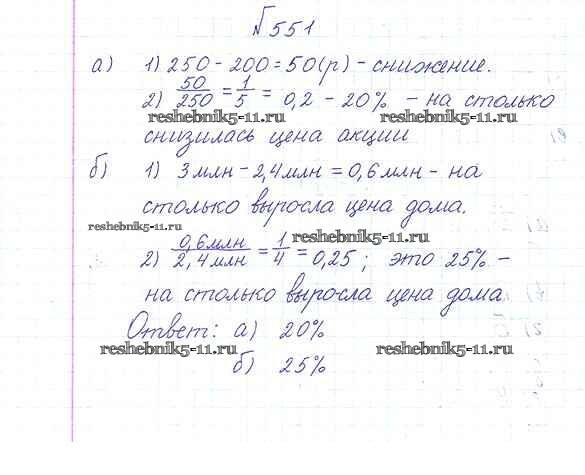 № 551
а) 1) 250 - 200 = 50 (р) - снижение.
2) 50/250 = 1/5 = 0,2 - 20% - на столько
reshebnik5-11.ru reshebnik5-11.ru
снизилась цена акции
б) 1) 3 млн - 2,4 млн = 0,6 млн - на
столько выросла цена дома.
reshebnik5-11.ru reshebnik5-11.ru
2) 0,6 млн/2,4 млн = 1/4 = 0,25; это 25% -
на столько выросла цена дома.
Ответ: а) 20%
reshebnik5-11.ru reshebnik5-11.ru
б) 25%